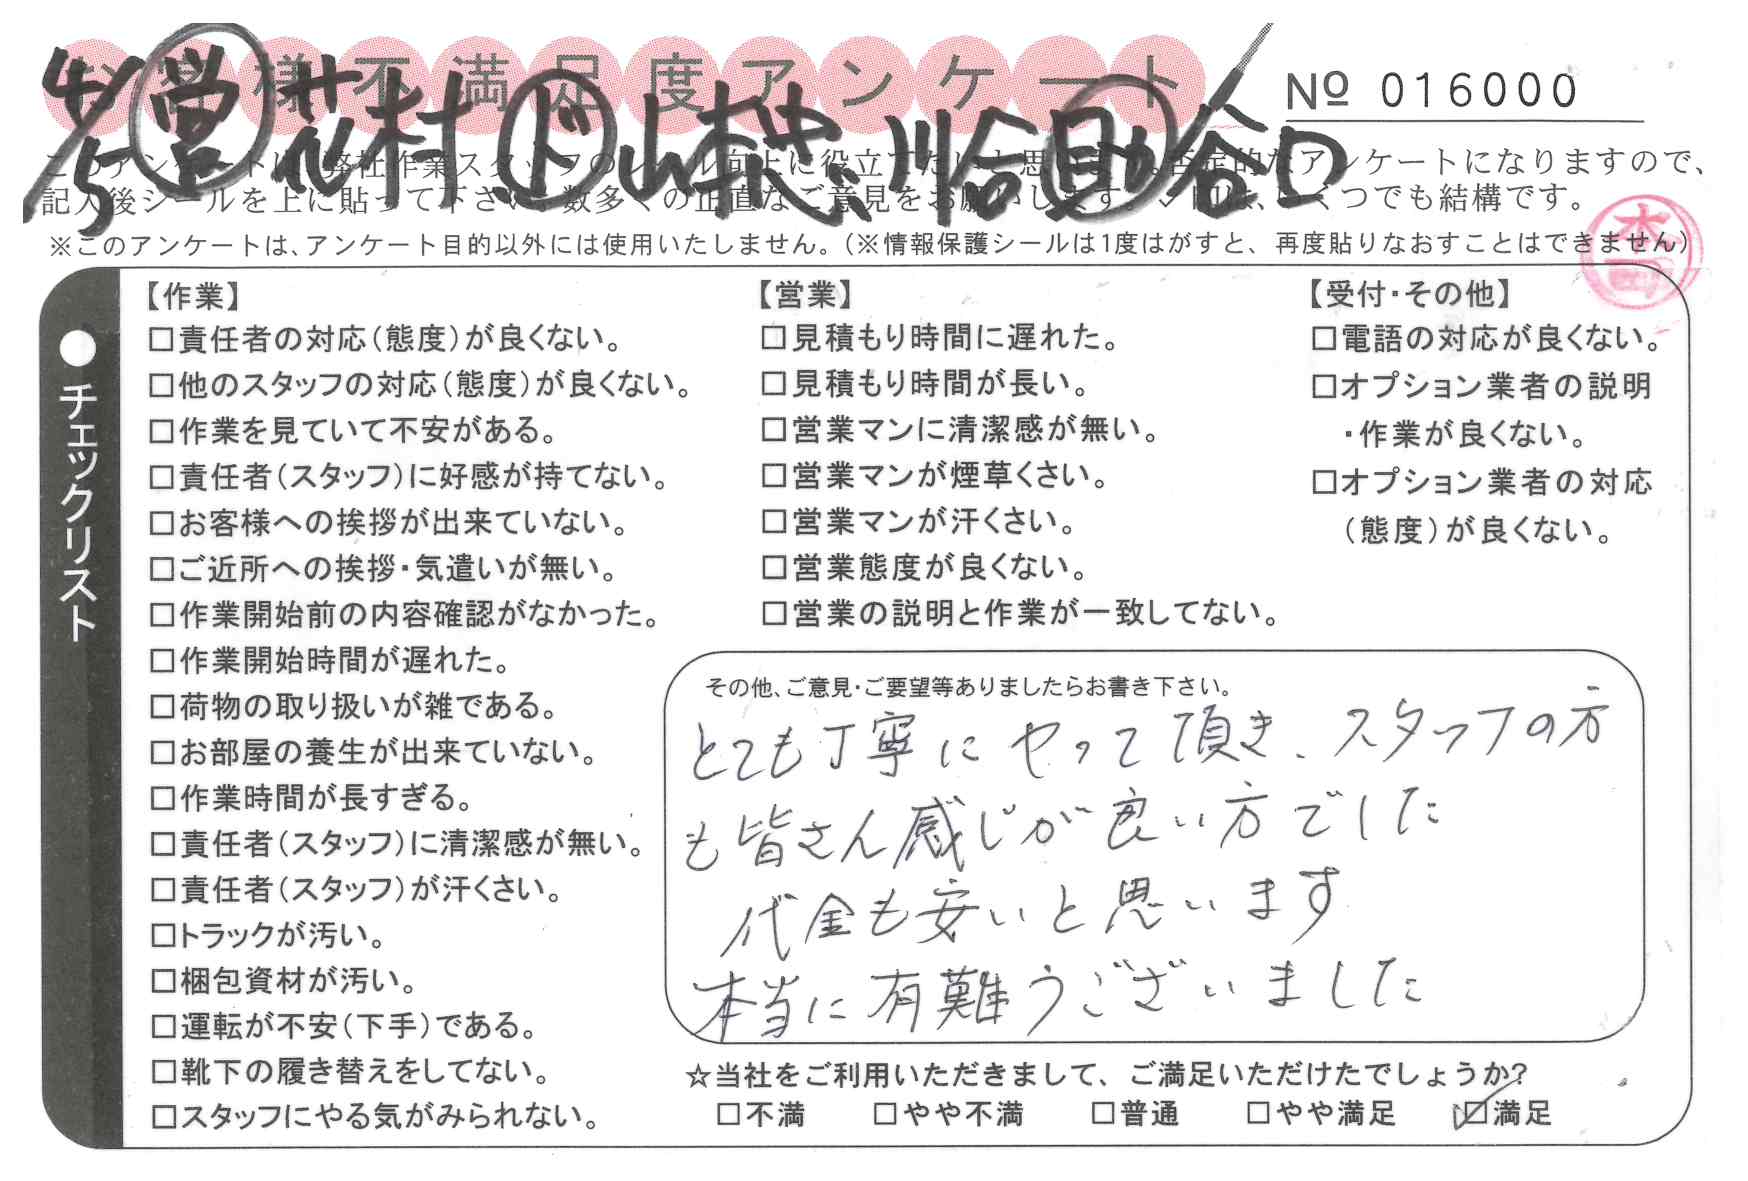 お客様不満足度アンケート
№ 016000
4/5 営 花村 ド 山本 川合 助 谷口
このアンケートは、弊社作業スタッフのレベル向上に役立てたいと思います。否定的なアンケートになりますので、
記入後シールを上に貼って下さい。数多くの正直なご意見をお願いします。✓印は、いくつでも結構です。
※このアンケートは、アンケート目的以外には使用いたしません。(※情報保護シールは1度はがすと、再度貼りなおすことはできません)
本
●チェックリスト
【作業】
□責任者の対応(態度)が良くない。
□他のスタッフの対応(態度)が良くない。
□作業を見ていて不安がある。
□責任者(スタッフ)に好感が持てない。
□お客様への挨拶が出来ていない。
□ご近所への挨拶・気遣いが無い。
□作業開始前の内容確認がなかった。
□作業開始時間が遅れた。
□荷物の取り扱いが雑である。
□お部屋の養生が出来ていない。
□作業時間が長すぎる。
□責任者(スタッフ)に清潔感が無い。
□責任者(スタッフ)が汗くさい。
□トラックが汚い。
□梱包資材が汚い。
□運転が不安(下手)である。
□靴下の履き替えをしてない。
□スタッフにやる気がみられない。
【営業】
□見積もり時間に遅れた。
□見積もり時間が長い。
□営業マンに清潔感が無い。
□営業マンが煙草くさい。
□営業マンが汗くさい。
□営業態度が良くない。
□営業の説明と作業が一致してない。
【受付・その他】
□電語の対応が良くない。
□オプション業者の説明
・作業が良くない。
□オプション業者の対応
(態度)が良くない。
その他、ご意見・ご要望等ありましたらお書き下さい。
とても丁寧にやって頂き、スタッフの方
も皆さん感じが良い方でした
代金も安いと思います
本当に有難うございました
☆当社をご利用いただきまして、ご満足いただけたでしょうか?
□不満 □やや不満 □普通 □やや満足 ☑満足